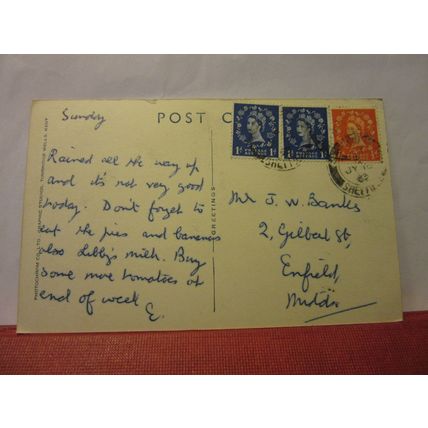 Sunday
POST C
Rained all the way up
and it's not very good
today. Don't forget to
eat the pies and bananas
also Libby's milk. Buy
some more tomatoes at
end of week
E.
Mr J. W. Banks
2, Gilbert St,
Enfield,
Middx
GREETINGS
PHOTOCHROM CO., LTD., GRAPHIC STUDIOS, TUNBRIDGE WELLS, KENT
1D 1D